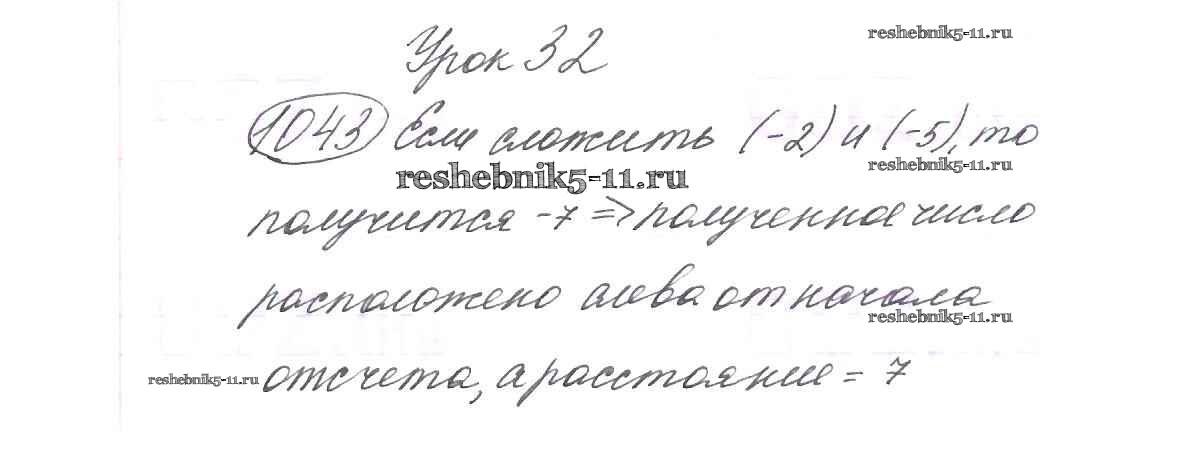 reshebnik5-11.ru
Урок 32
1043 Если сложить (-2) и (-5), то
reshebnik5-11.ru
reshebnik5-11.ru
получится -7 => полученное число
расположено слева от начала
reshebnik5-11.ru
reshebnik5-11.ru
отсчета, а расстояние = 7